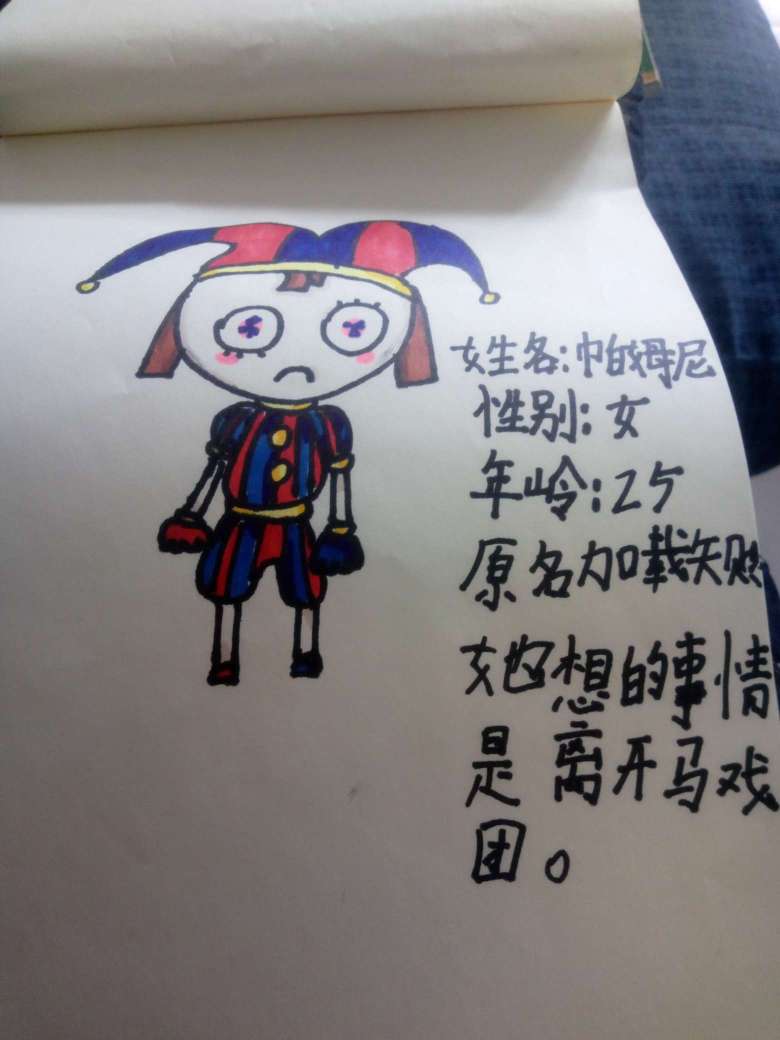 女生各:帕姆尼
性别:女
年岭:25
原名加载失败
她想的事情
是离开马戏
团。